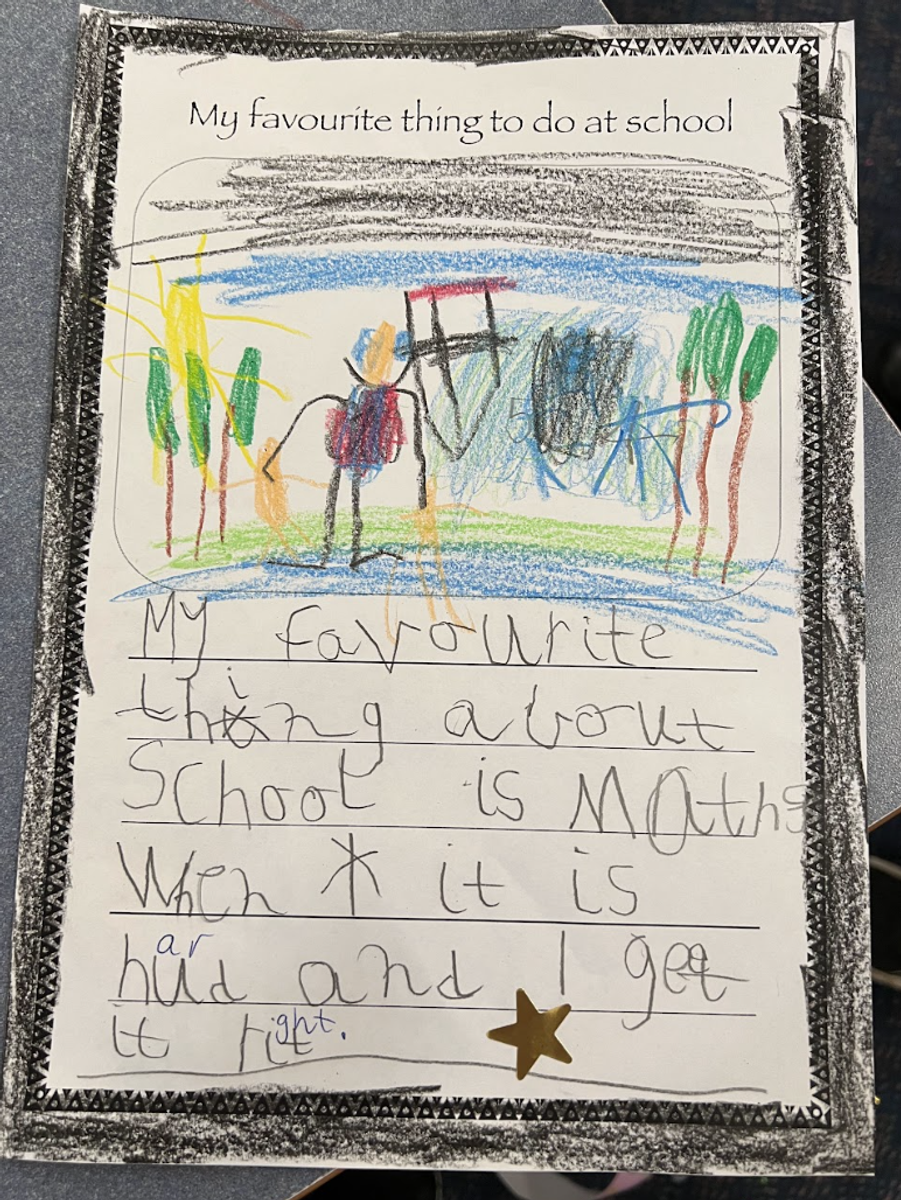 My favourite thing to do at school
My favourite
thing about
School is Maths
When it is
hud and I get
ar
it rit
ght.